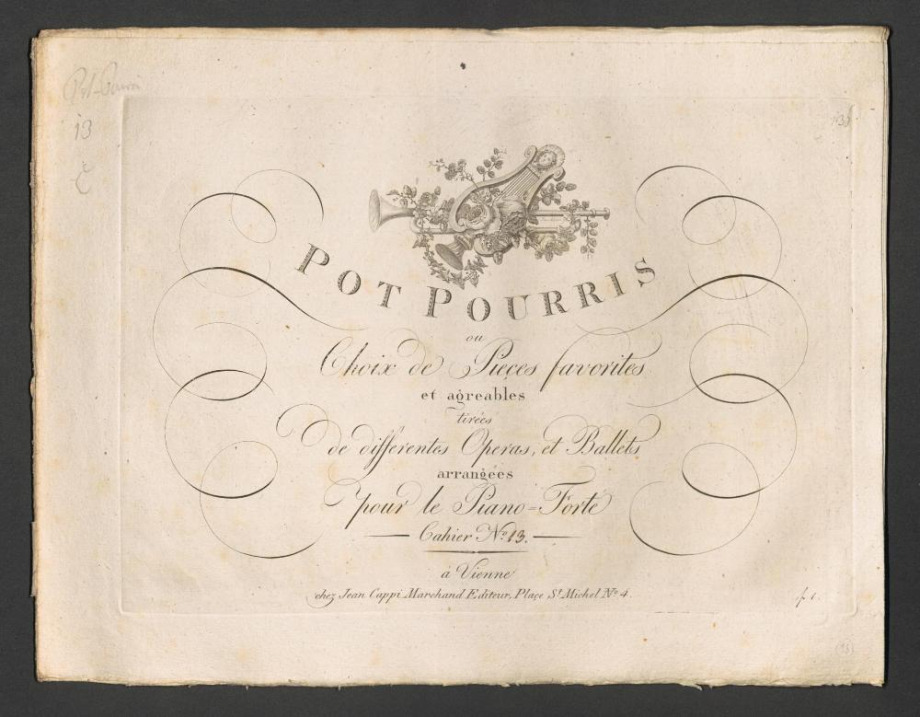 Pot-Pourri
13
POT POURRIS
ou
Choix de Pieçes favorites
et agréables
tirées
de differentes Operas, et Ballets
arrangées
pour le Piano=Forté
Cahier No 13.
à Vienne
chez Jean Cappi Marchand Editeur, Plaçe St Michel No 4.